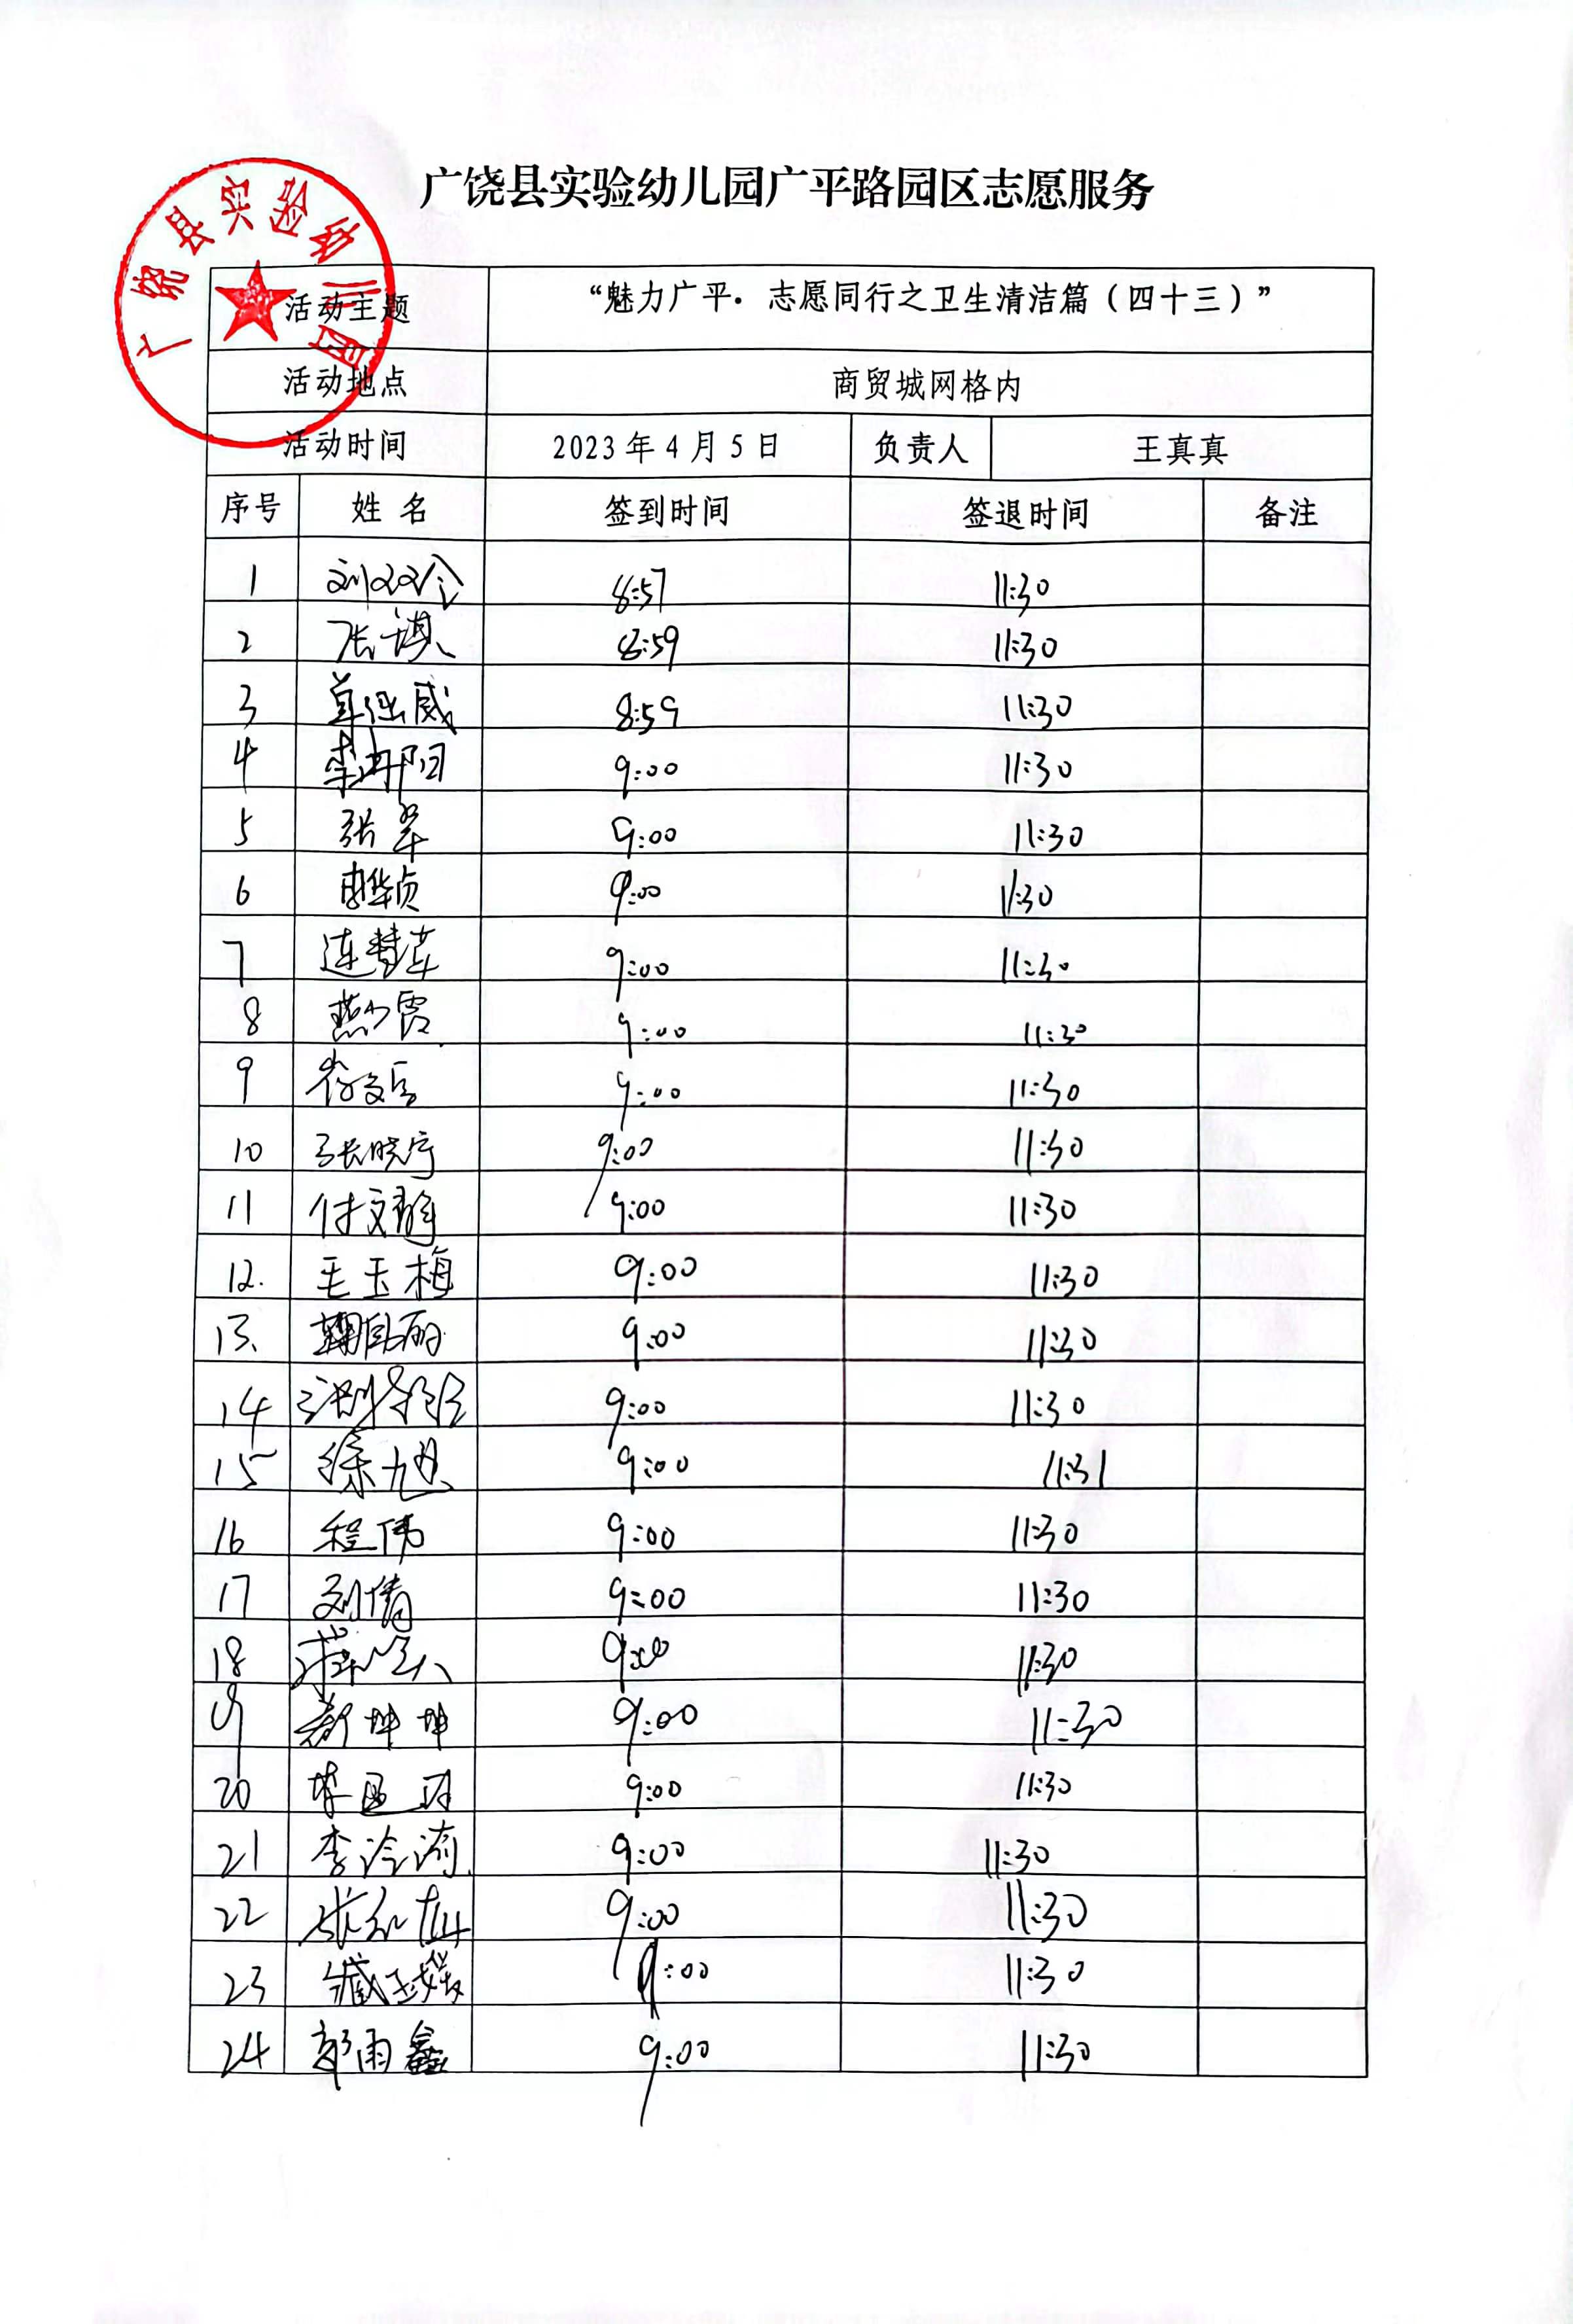 广饶县实验幼儿园广平路园区志愿服务
广饶县实验幼儿园
活动主题 “魅力广平·志愿同行之卫生清洁篇（四十三）”
活动地点 商贸城网格内
活动时间 2023年4月5日 负责人 王真真
序号 姓名 签到时间 签退时间 备注
1 刘双令 8:57 11:30
2 张琪 8:59 11:30
3 8:59 11:30
4 李丹阳 9:00 11:30
5 张翠 9:00 11:30
6 9:00 11:30
7 连梦苹 9:00 11:30
8 燕少霞 9:00 11:30
9 9:00 11:30
10 张晓宇 9:00 11:30
11 付文静 9:00 11:30
12. 毛玉梅 9:00 11:30
13. 9:00 11:30
14 9:00 11:30
15 徐旭 9:00 11:31
16 程伟 9:00 11:30
17 刘倩 9:00 11:30
18 9:00 11:30
19 坤坤 9:00 11:30
20 9:00 11:30
21 李泠漪 9:00 11:30
22 9:00 11:30
23 9:00 11:30
24 郭雨鑫 9:00 11:30